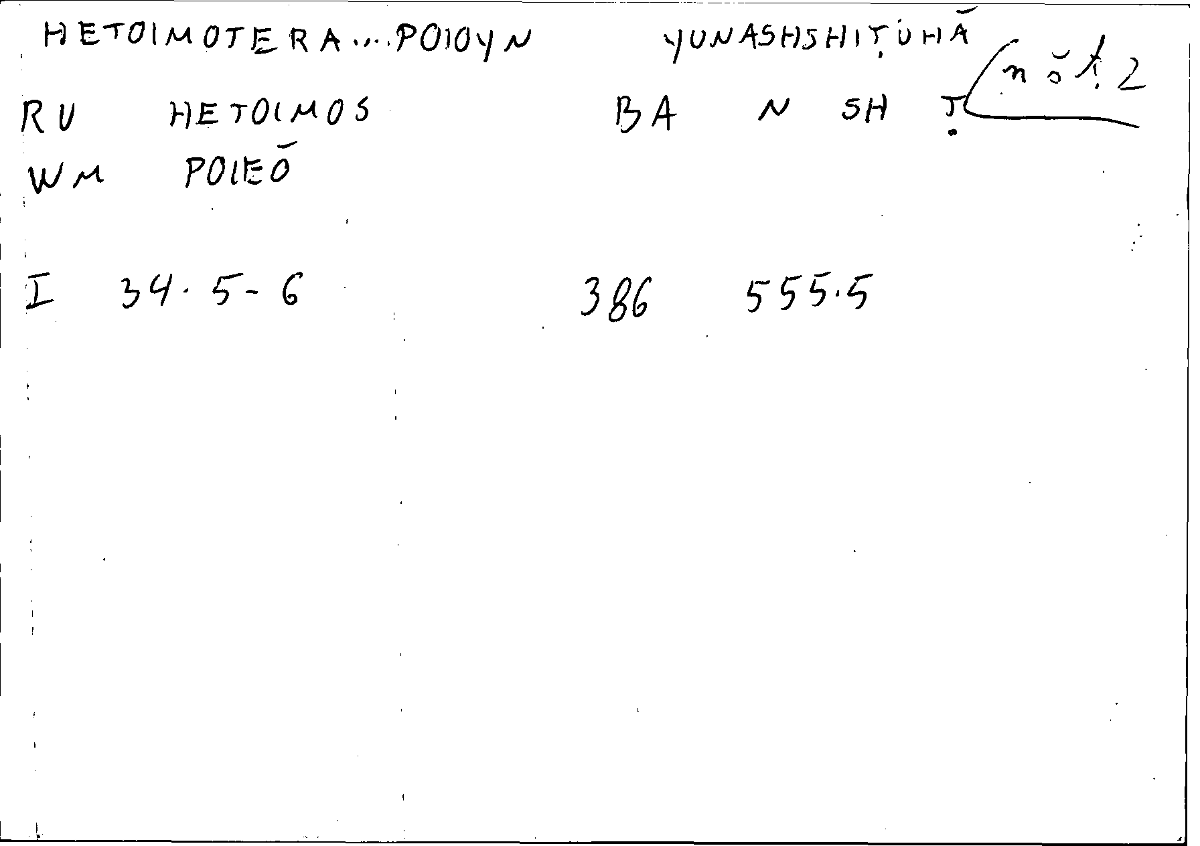 HETOIMOTERA....POIOYN YUNASHSHIṬUHĀ
RU HETOIMOS BA N SH Ṭ
WM POIEŌ
I 34.5-6 386 555.5